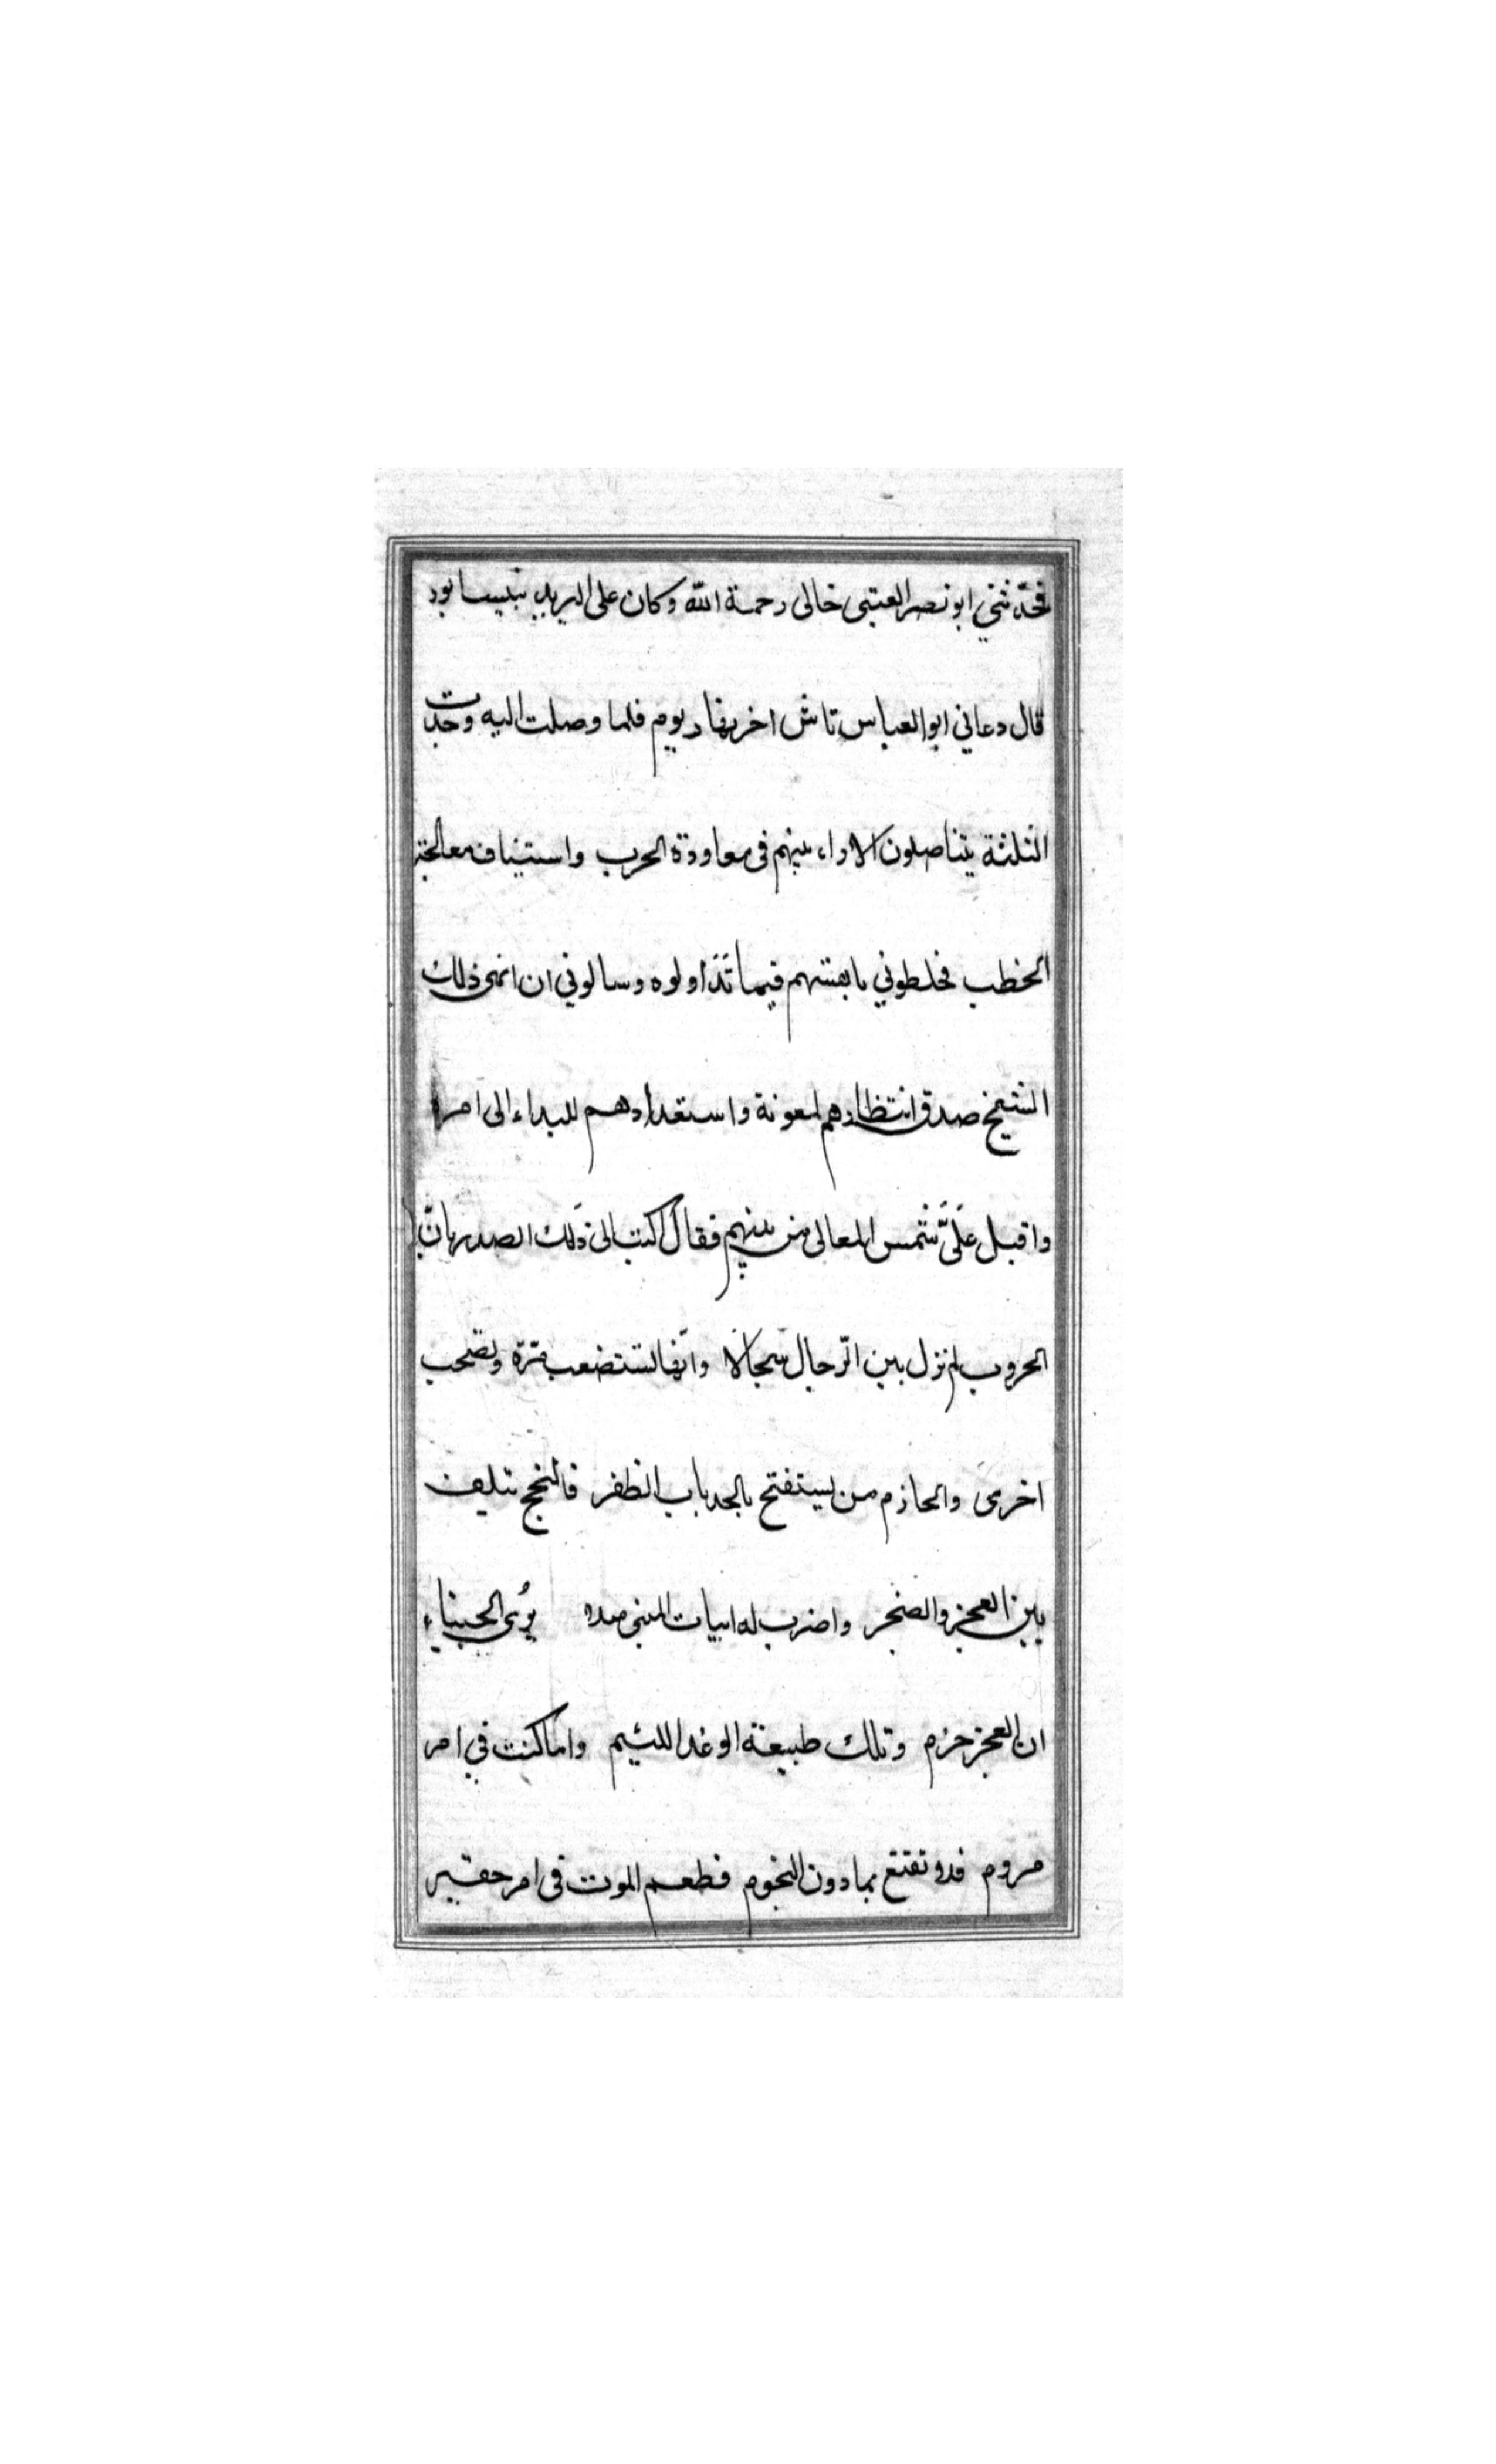 فحدّثني ابو نصر العتبى خالى رحمة اللّه وكان على البريد بنيسابور
قال دعاني ابو العباس تاش اخر نهار يوم فلما وصلت اليه وجدت
الثلثة يتناضلون الاراء بينهم فى معاودة الحرب واستيناف معالجة
الخطب فخلطوني بانفسهم فيما تَدَاولوه وسالوني ان انهى ذلك
الشيخ صدق انتظارهم لمعونة واستعدادهم للبداء الى امره
واقبل عَلَىَّ شمس المعالى من بينهم فقال اكتب الى ذَلك الصدر بانّ
الحروب لم نزل بين الرّجال سجالًا وانّها لتستضعب مَرّة وتصحب
اخرى والحازم من يستفتح بالجد باب الظفر فالنجح تيلف
بين العجز والضجر واضرب له ابيات المتنبى مده يُرى الجبناء
ان العجز حزم وتلك طبيعة الوغد اللئيم واما كنت في امر
مروم فلا تقنع بما دون النجوم فطعم الموت فى امر حقير